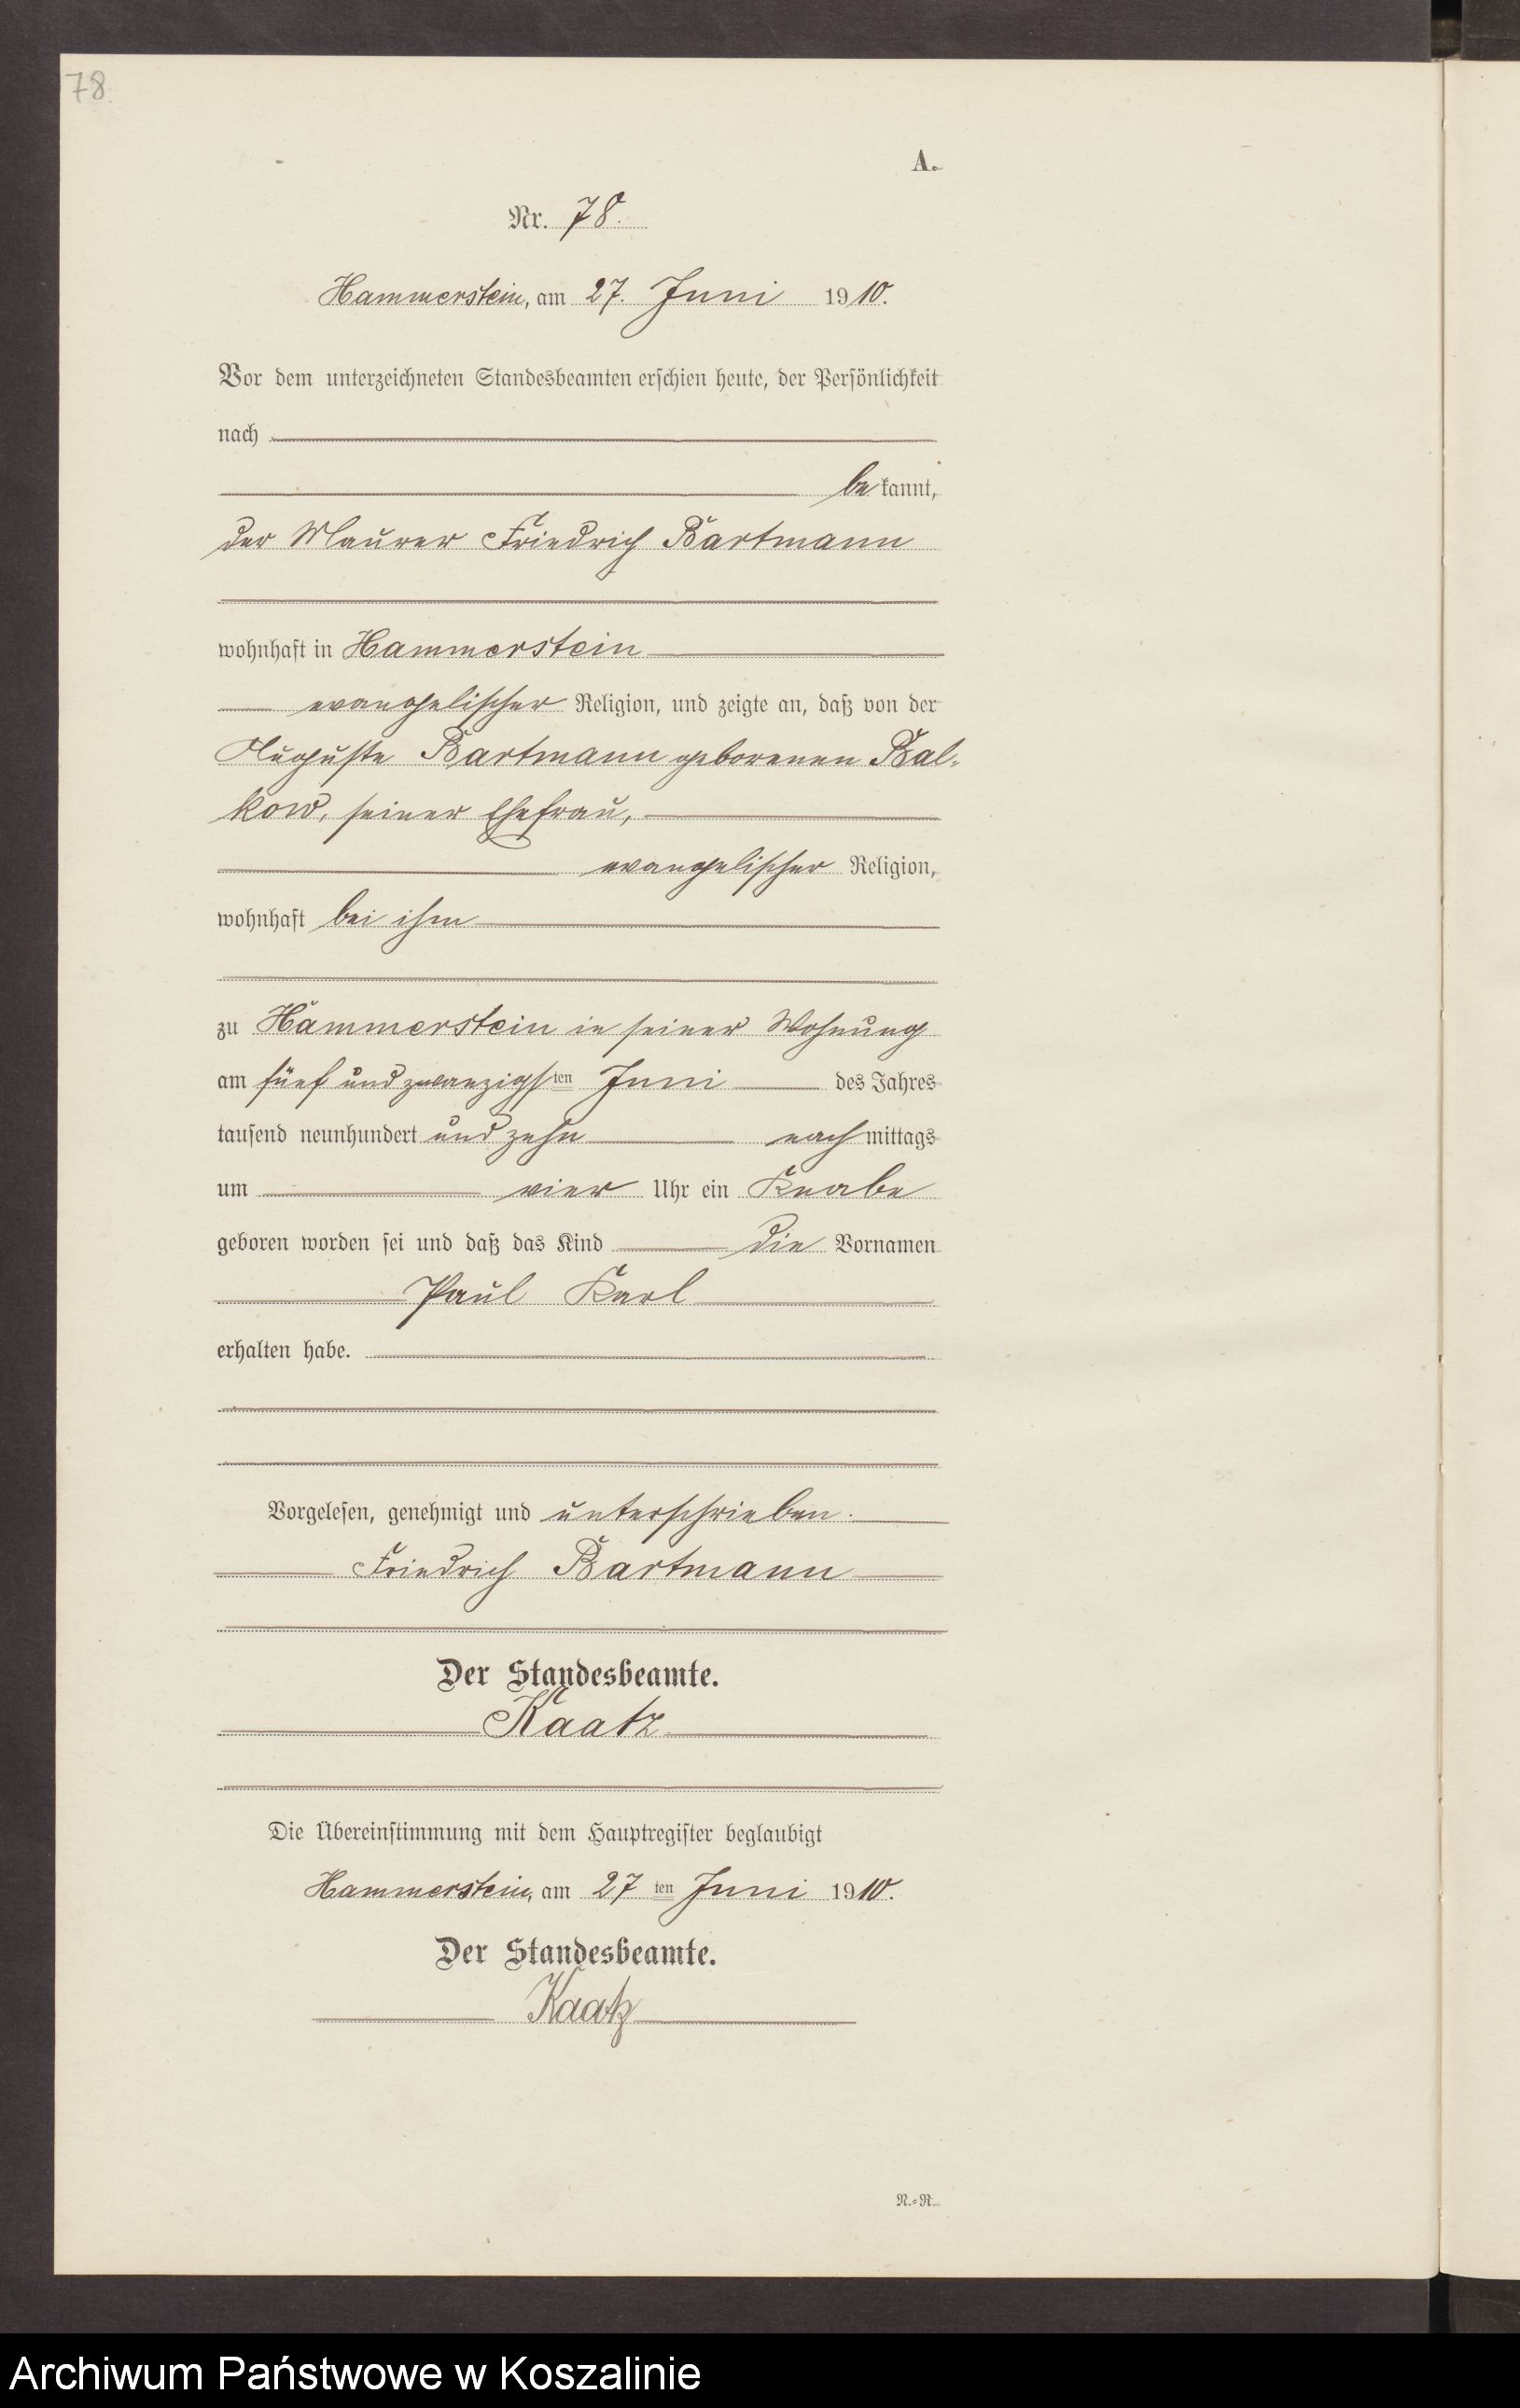 78
A.
Nr. 78.
Hammerstein, am 27. Juni 1910.
Vor dem unterzeichneten Standesbeamten erschien heute, der Persönlichkeit
nach
bekannt,
der Maurer Friedrich Bartmann
wohnhaft in Hammerstein
evangelischer Religion, und zeigte an, daß von der
Auguste Bartmann geborenen Bal-
kow, seiner Ehefrau,
evangelischer Religion,
wohnhaft bei ihm
zu Hammerstein in seiner Wohnung
am fünf und zwanzigsten Juni des Jahres
tausend neunhundert und zehn nachmittags
um vier Uhr ein Knabe
geboren worden sei und daß das Kind die Vornamen
Paul Karl
erhalten habe.
Vorgelesen, genehmigt und unterschrieben.
Friedrich Bartmann
Der Standesbeamte.
Kaatz
Die Übereinstimmung mit dem Hauptregister beglaubigt
Hammerstein, am 27ten Juni 1910.
Der Standesbeamte.
Kaatz
N.=R.
Archiwum Państwowe w Koszalinie